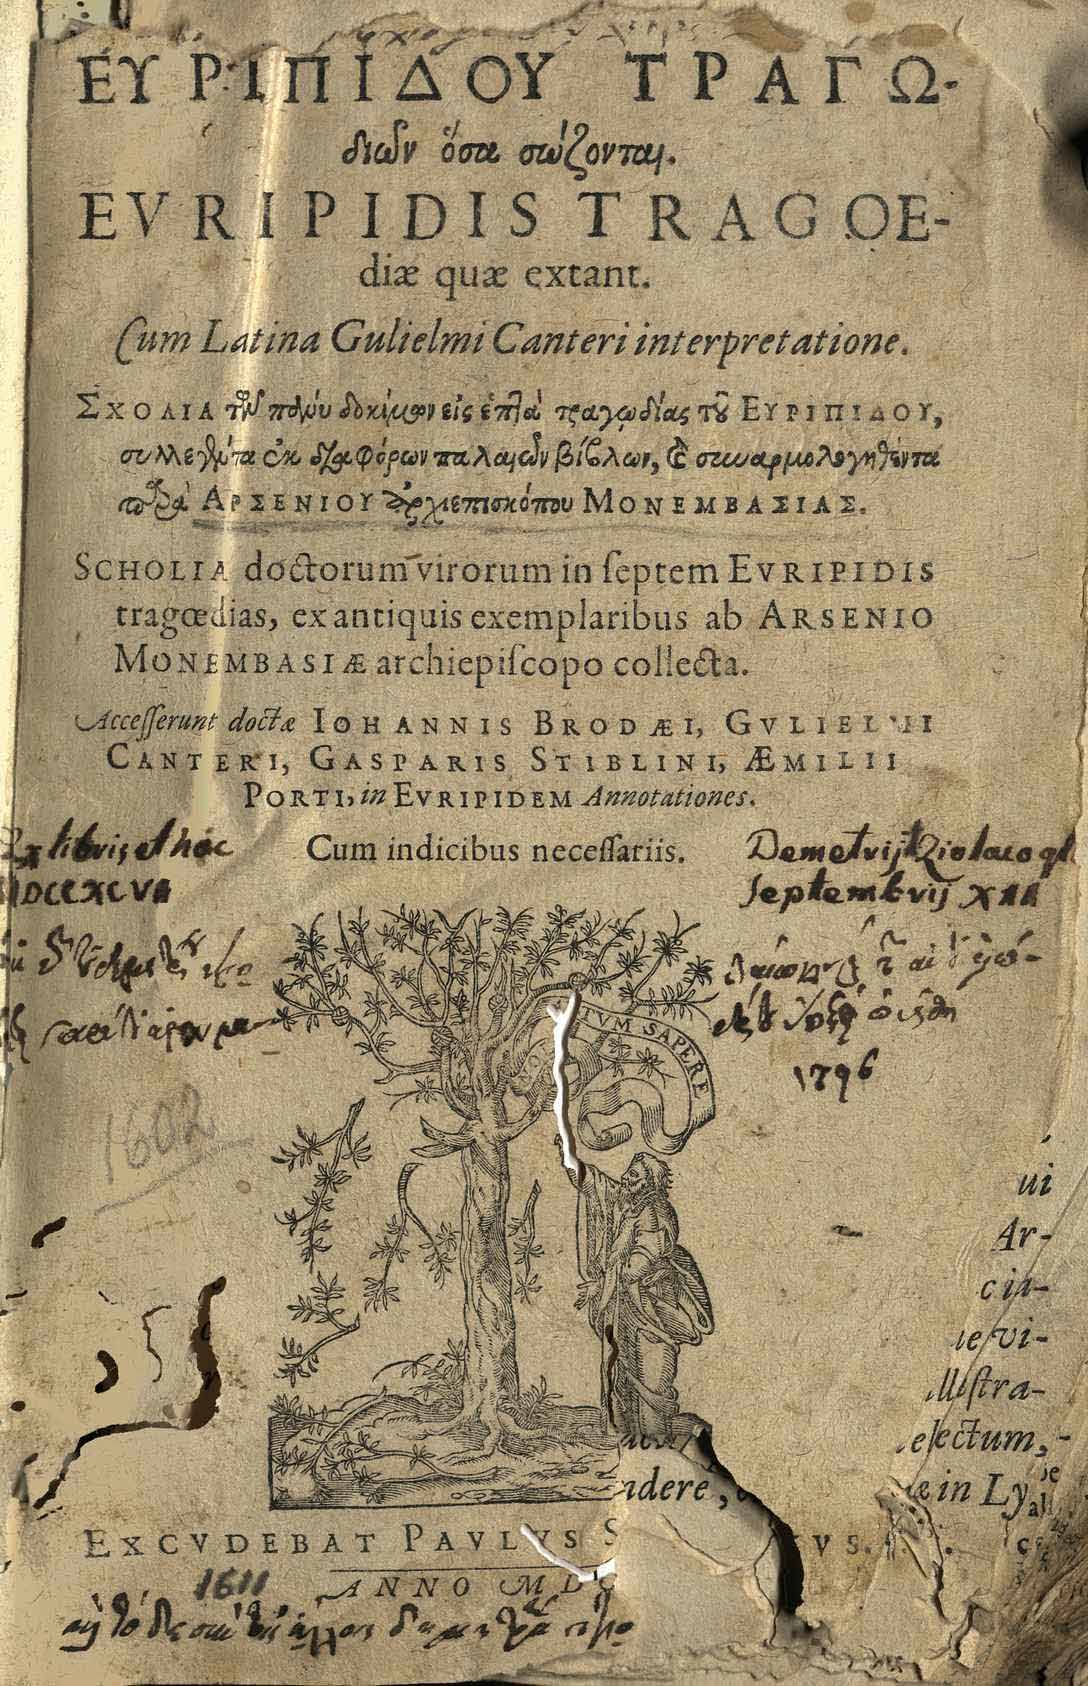 ΕΥΡΙΠΙΔΟΥ ΤΡΑΓΩ-
διῶν ὅσα σώζονται.
EVRIPIDIS TRAGOE-
diæ quæ extant.
Cum Latina Gulielmi Canteri interpretatione.
ΣΧΟΛΙΑ τῶν πάνυ δοκίμων εἰς ἑπτὰ τραγῳδίας τοῦ ΕΥΡΙΠΙΔΟΥ,
συλλεγέντα ἐκ διαφόρων παλαιῶν βίβλων, καὶ συναρμολογηθέντα
παρὰ ΑΡΣΕΝΙΟΥ ἀρχιεπισκόπου ΜΟΝΕΜΒΑΣΙΑΣ.
SCHOLIA doctorum virorum in ſeptem EVRIPIDIS
tragœdias, ex antiquis exemplaribus ab ARSENIO
MONEMBASIÆ archiepiſcopo collecta.
Acceſſerunt doctæ IOHANNIS BRODÆI, GVLIELMI
CANTERI, GASPARIS STIBLINI, ÆMILII
PORTI, in EVRIPIDEM Annotationes.
Cum indicibus neceſſariis.
Ex libris et hoc Demetrij
MDCCXCVII Septembrij XII
1796
TVM SAPERE
1602
ui
Ar-
cia-
ie vi-
lluſtra-
electum,
ndere, in Ly
EXCVDEBAT PAVLVS S VS.
1611
ANNO MDC